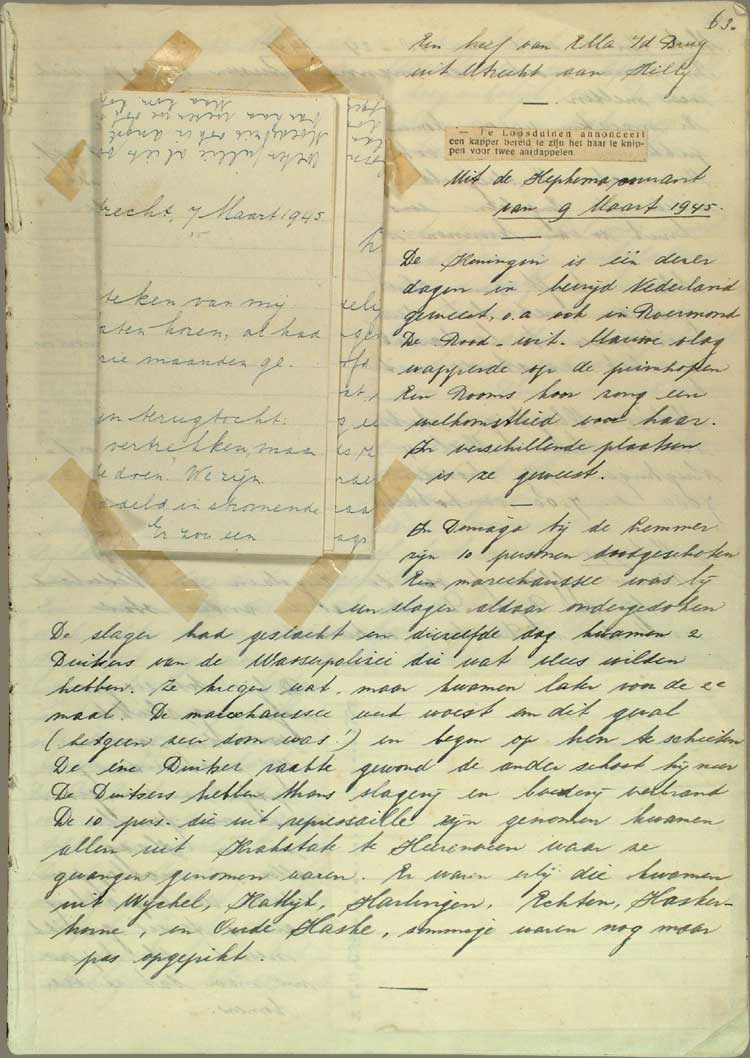 63.
Een brief van Ella v/d Brug
uit Utrecht aan Hilly
— Te Loosduinen annonceert
een kapper bereid te zijn het haar te knip-
pen voor twee aardappelen.
Uit de Hepkema courant
van 9 Maart 1945.
De Koningin is één dezer
dagen in bevrijd Nederland
geweest, o.a ook in Roermond
De Rood-wit-blauwe vlag
wapperde op de puinhopen
Een Rooms koor zong een
welkomstlied voor haar.
In verschillende plaatsen
is ze geweest.
trecht, 7 Maart 1945
teken van mij
aten horen, al had
rie maanden ge-
en terugtocht:
vertrekken, maar
te doen. We zijn
ndeld in stromende
Er zou een
In Doniaga bij de Lemmer
zijn 10 personen doodgeschoten
Een marechaussee was bij
een slager aldaar ondergedoken
De slager had geslacht en diezelfde dag kwamen 2
Duitsers van de Wasserpolizei die wat vlees wilden
hebben. Ze kregen wat, maar kwamen later voor de 2e
maal. De marechaussee werd woest om dit geval
(hetgeen zeer dom was!) en begon op hen te schieten
De éne Duitser raakte gewond de ander schoot hij neer
De Duitsers hebben thans slagerij en boerderij verbrand
De 10 pers. die uit represaille zijn genomen kwamen
allen uit Krakstate te Heerenveen waar ze
gevangen genomen waren. Er waren erbij die kwamen
uit Wyckel, Katlijk, Harlingen, Echten, Hasker-
horne, en Oude Haske, sommige waren nog maar
pas opgepikt.